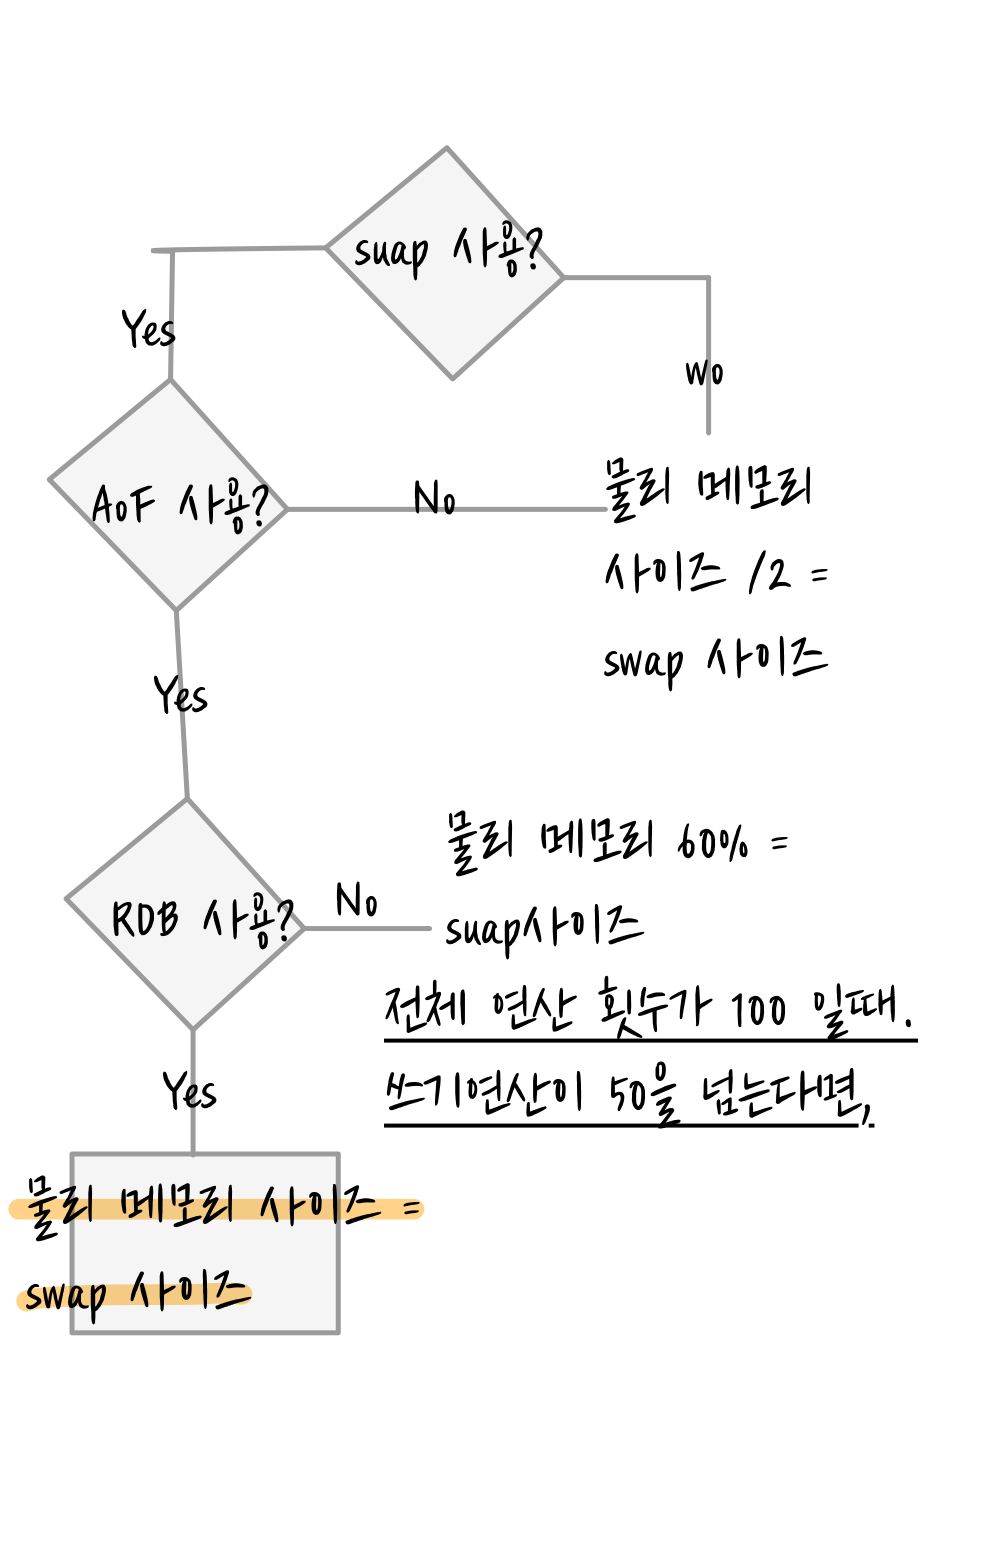 suap 사용?
Yes
wo
AoF 사용?
No
물리 메모리
사이즈 /2 =
swap 사이즈
Yes
RDB 사용?
No
물리 메모리 60% =
suap사이즈
전체 연산 횟수가 100 일때.
쓰기연산이 50을 넘는다면,
Yes
물리 메모리 사이즈 =
swap 사이즈